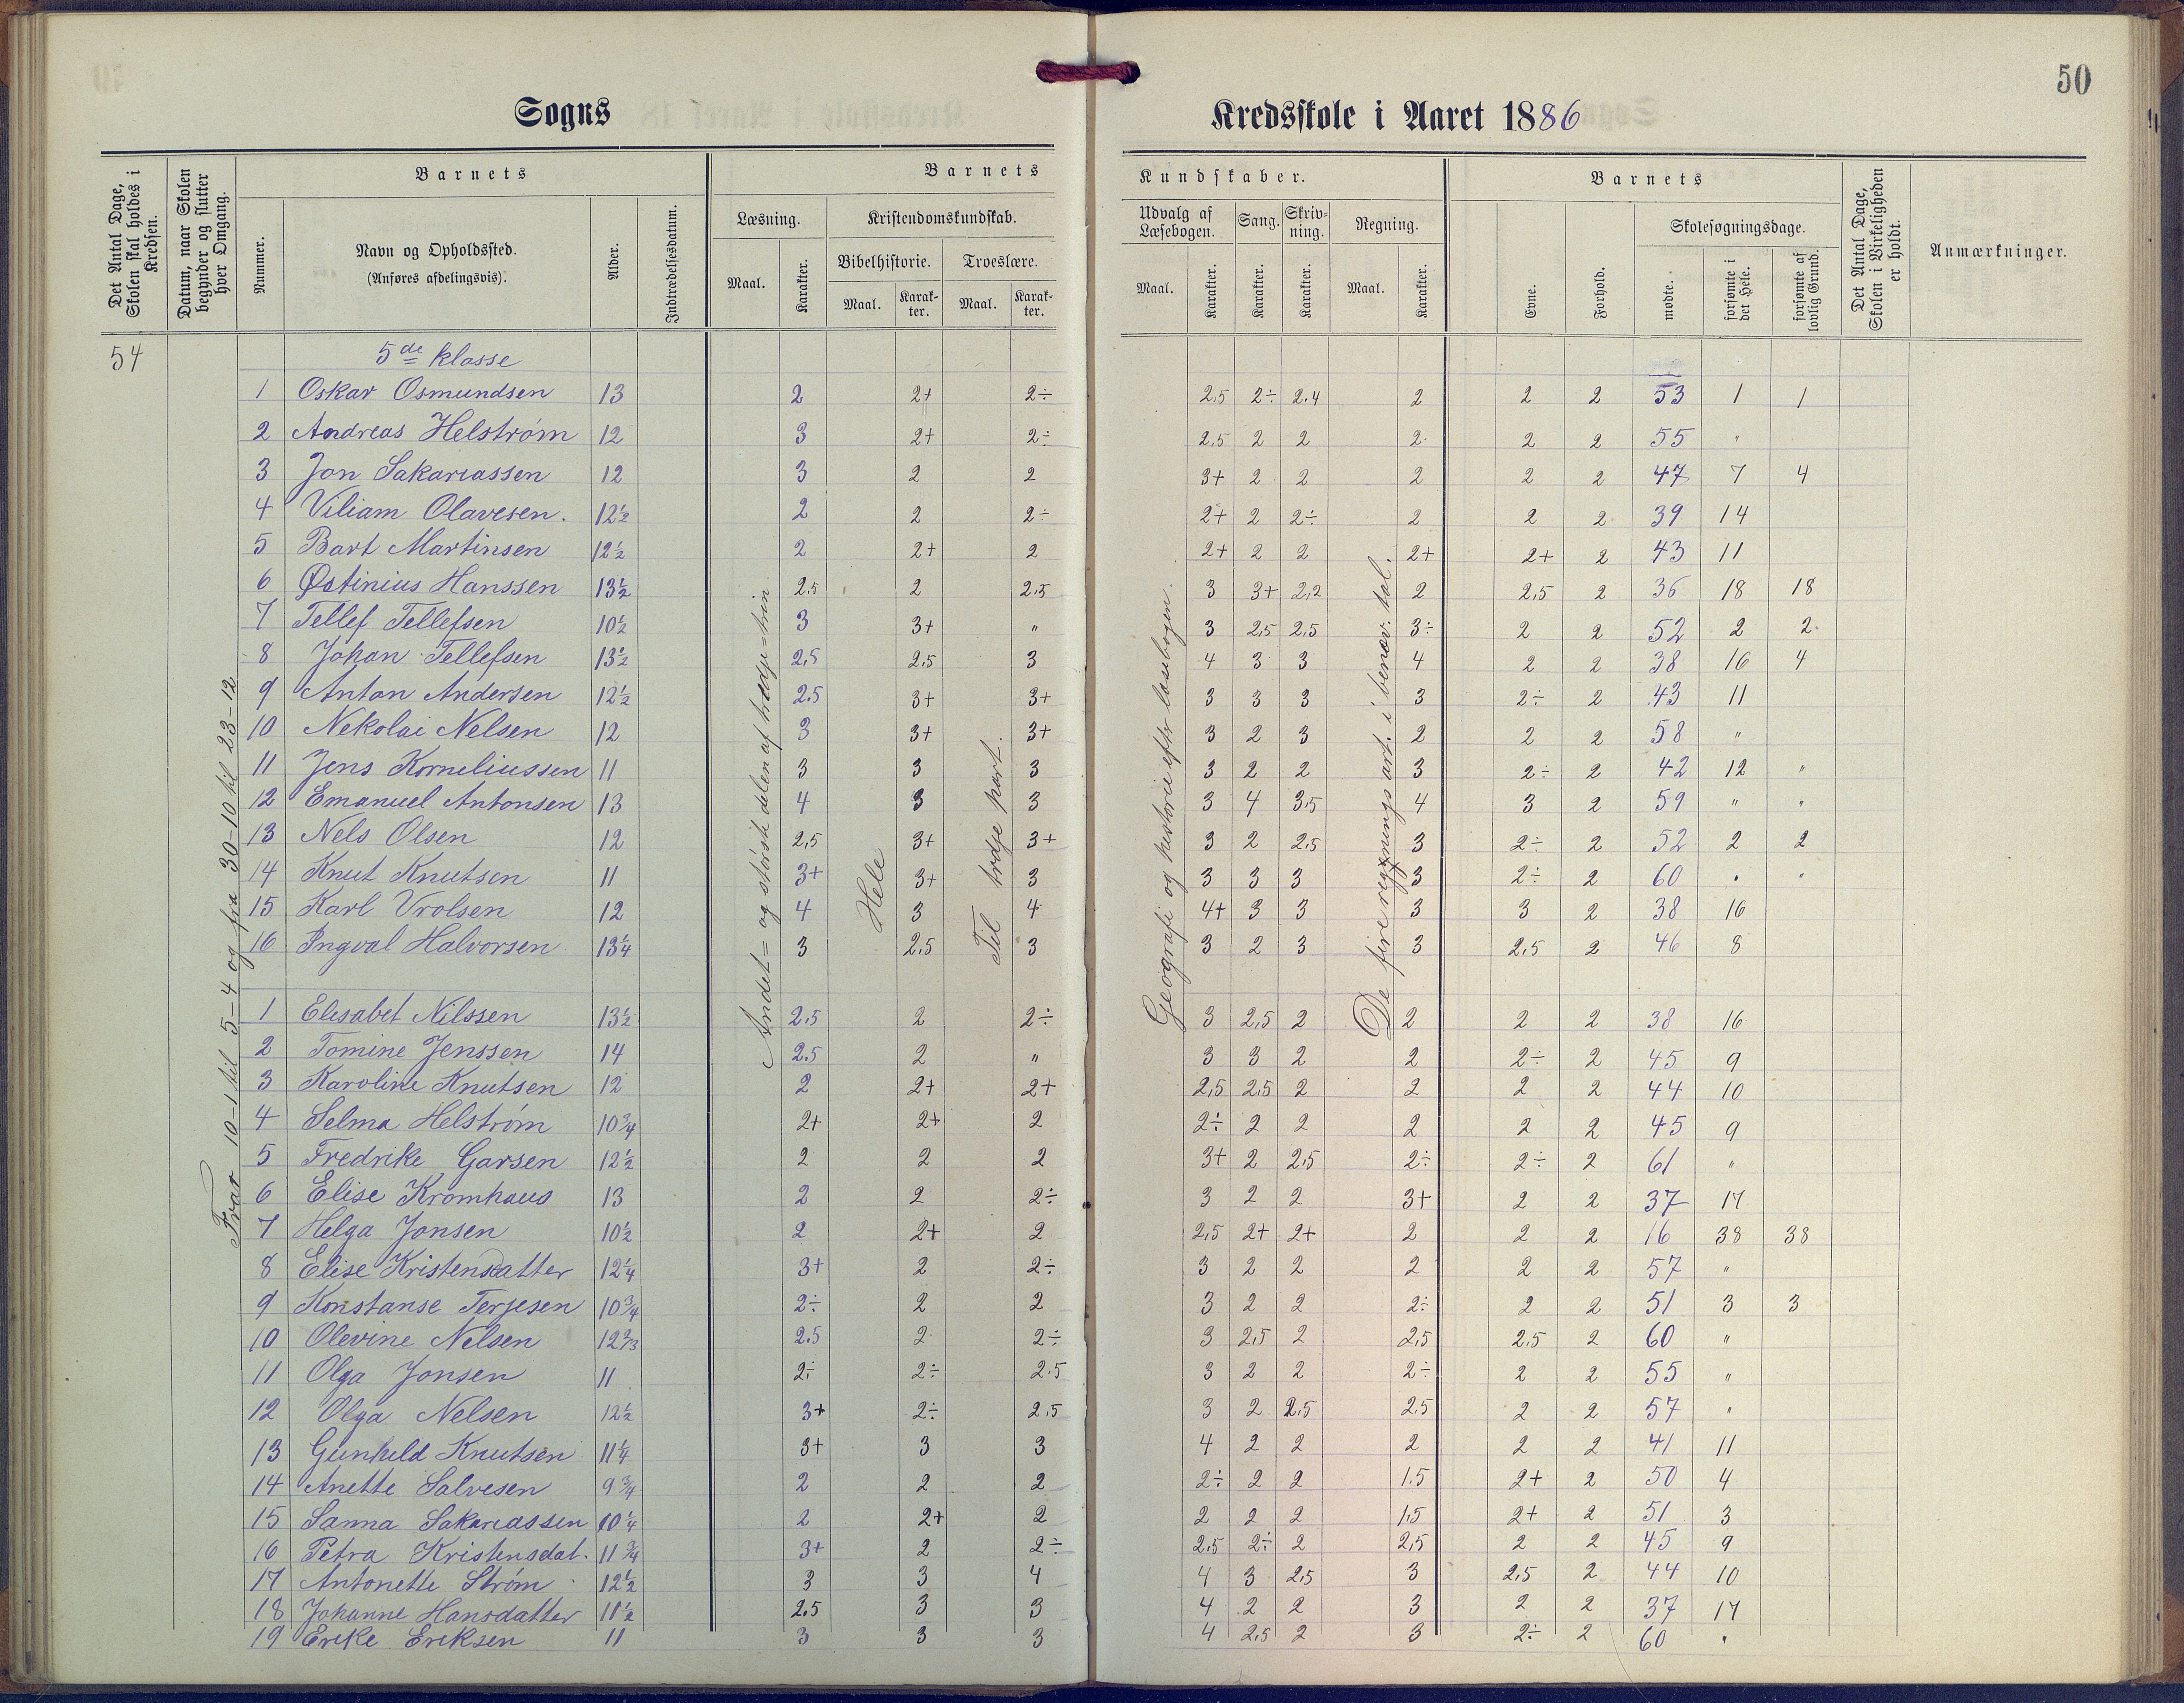 50
Sogns Kredsskole i Aaret 1886
Det Antal Dage, Skolen skal holdes i Kredsen.
Datum, naar Skolen begynder og slutter hver Omgang.
Barnets
Nummer.
Navn og Opholdssted.
(Anføres afdelingsvis).
Alder.
Indtrædelsesdatum.
Barnets Kundskaber.
Læsning.
Maal.
Karakter.
Kristendomskundskab.
Bibelhistorie.
Maal.
Karakter.
Troeslære.
Maal.
Karakter.
Udvalg af Læsebogen.
Maal.
Karakter.
Sang.
Karakter.
Skrivning.
Karakter.
Regning.
Maal.
Karakter.
Barnets
Evne.
Forhold.
Skolesøgningsdage.
mødte.
forsømte i det Hele.
forsømte af lovlig Grund.
Det Antal Dage, Skolen i Virkeligheden er holdt.
Anmærkninger.
54
Fra 10-1 til 5-4 og fra 30-10 til 23-12
Andet= og størstedelen af tredje=trin
Hele
Til tredje part.
Geografi og historie efter læsebogen.
De fire regningsart. i benæv. tal.
5de klasse
1 Oskar Osmundsen 13 2 2+ 2÷ 2,5 2÷ 2.4 2 2 2 53 1 1
2 Andreas Helstrøm 12 3 2+ 2÷ 2,5 2 2 2 2 2 55 "
3 Jon Sakariassen 12 3 2 2 3+ 2 2 2 2 2 47 7 4
4 Viliam Olavesen. 12½ 2 2 2÷ 2+ 2 2÷ 2 2 2 39 14
5 Bart Martinsen 12½ 2 2+ 2 2+ 2 2 2+ 2+ 2 43 11
6 Østinius Hanssen 13½ 2.5 2 2,5 3 3+ 2,2 2 2,5 2 36 18 18
7 Tellef Tellefsen 10½ 3 3+ " 3 2,5 2,5 3÷ 2 2 52 2 2
8 Johan Tellefsen 13½ 2,5 2,5 3 4 3 3 4 2 2 38 16 4
9 Anton Andersen 12½ 2.5 3+ 3+ 3 3 3 3 2÷ 2 43 11
10 Nekolai Nelsen 12 3 3+ 3+ 3 2 3 2 2 2 58 "
11 Jens Korneliussen 11 3 3 3 3 2 2 3 2÷ 2 42 12 "
12 Emanuel Antonsen 13 4 3 3 3 4 3,5 4 3 2 59 " "
13 Nels Olsen 12 2,5 3+ 3+ 3 2 2,5 3 2÷ 2 52 2 2
14 Knut Knutsen 11 3+ 3+ 3 3 3 3 3 2÷ 2 60 " "
15 Karl Vrolsen 12 4 3 4 4+ 3 3 3 3 2 38 16
16 Ingval Halvorsen 13¼ 3 2,5 3 3 2 3 3 2,5 2 46 8
1 Elisabet Nilssen 13½ 2.5 2 2÷ 3 2,5 2 2 2 2 38 16
2 Tomine Jenssen 14 2.5 2 " 3 3 2 2 2÷ 2 45 9
3 Karoline Knutsen 12 2 2+ 2+ 2,5 2,5 2 2 2 2 44 10
4 Selma Helstrøm 10¾ 2+ 2+ 2 2÷ 2 2 2 2 2 45 9
5 Fredrike Garsen 12½ 2 2 2 3+ 2 2,5 2÷ 2÷ 2 61 "
6 Elise Kromhaus 13 2 2 2÷ 3 2 2 3+ 2 2 37 17
7 Helga Jonsen 10½ 2 2+ 2 2,5 2+ 2+ 2 2 2 16 38 38
8 Elise Kristensdatter 12¼ 3+ 2 2÷ 3 2 2 2 2 2 57 "
9 Konstanse Terjesen 10¾ 2÷ 2 2 3 2 2 2÷ 2 2 51 3 3
10 Olevine Nelsen 12⅔ 2.5 2 2÷ 3 2,5 2 2,5 2,5 2 60 "
11 Olga Jonsen 11 2÷ 2÷ 2.5 3 2 2 2÷ 2 2 55 "
12 Olga Nelsen 12½ 3+ 2÷ 2,5 3 2 2,5 2,5 2 2 57 "
13 Gunhild Knutsen 11¼ 3+ 3 3 4 2 2 2 2 2 41 11
14 Anette Salvesen 9¾ 2 2 2 2÷ 2 2 1.5 2+ 2 50 4
15 Sanna Sakariassen 10¼ 2 2+ 2 2 2 2 1,5 2+ 2 51 3
16 Petra Kristensdat. 11¾ 3+ 2 2÷ 2,5 2÷ 2 2,5 2 2 45 9
17 Antonette Strøm 12½ 3 3 4 4 3 2,5 3 2,5 2 44 10
18 Johanne Hansdatter 11½ 2.5 3 3 4 2 2 3 2 2 37 17
19 Erike Eriksen 11 3 3 3 4 2,5 2 3 2÷ 2 60 "